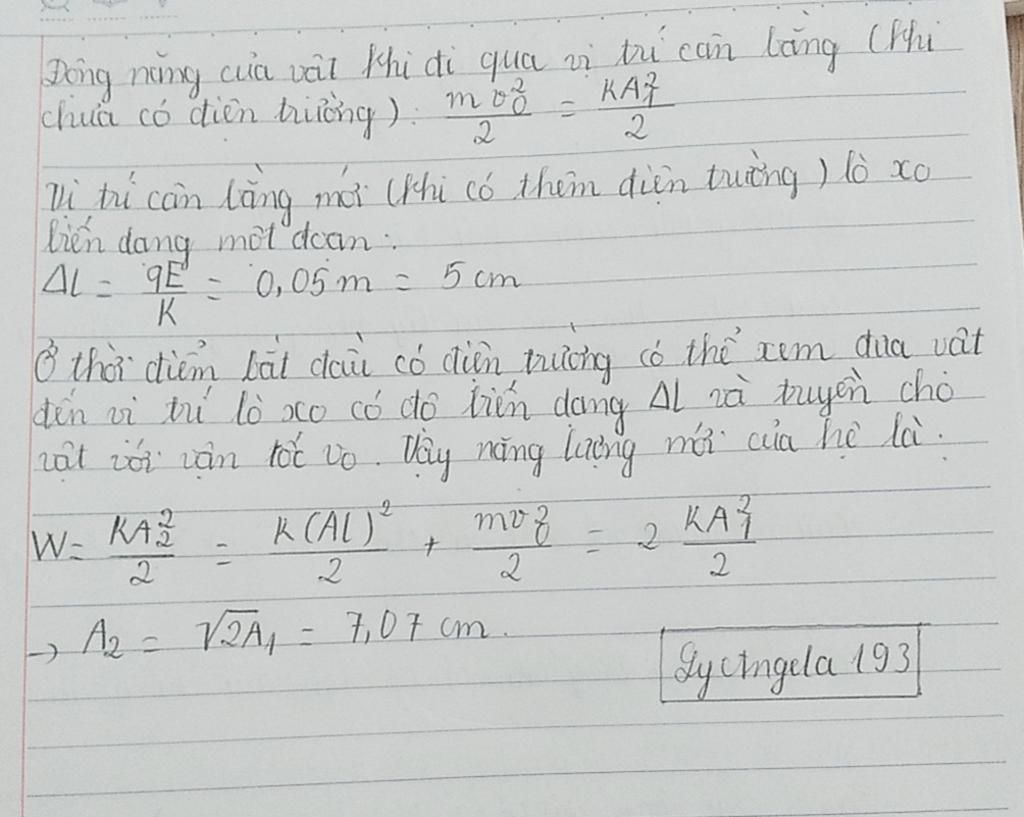 Động năng của vật khi đi qua vị trí cân bằng (khi
chưa có điện trường): mv₀²/2 = KA₁²/2
Vị trí cân bằng mới (khi có thêm điện trường) lò xo
biến dạng một đoạn:
Δl = qE/K = 0,05m = 5cm
Ở thời điểm bắt đầu có điện trường có thể xem đưa vật
đến vị trí lò xo có độ biến dạng Δl và truyền cho
vật với vận tốc vo. Vậy năng lượng mới của hệ là:
W = KA₂²/2 = k(Δl)²/2 + mv₀²/2 = 2 KA₁²/2
→ A₂ = √2A₁ = 7,07 cm.
193